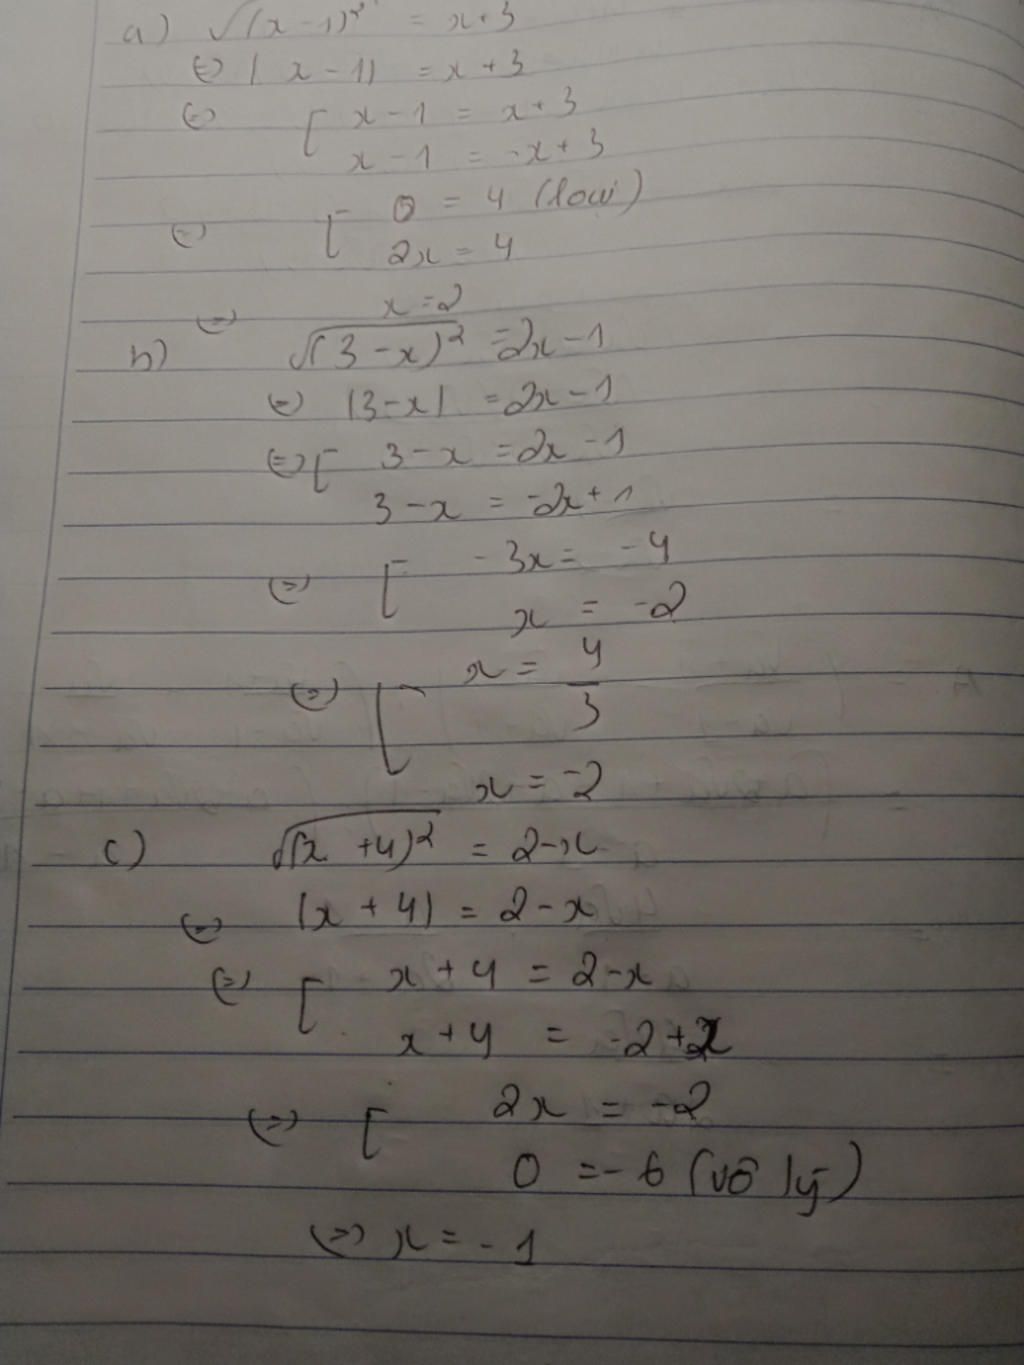 a) √(x-1)² = x+3
⇔ |x-1| = x+3
⇔ [ x-1 = x+3
x-1 = -x+3
⇔ [ 0 = 4 (loại)
2x = 4
⇔ x=2
b) √(3-x)² = 2x-1
⇔ |3-x| = 2x-1
⇔ [ 3-x = 2x-1
3-x = -2x+1
⇔ [ -3x = -4
x = -2
⇔ [ x = 4/3
x = -2
c) √(x+4)² = 2-x
⇔ |x+4| = 2-x
⇔ [ x+4 = 2-x
x+4 = -2+x
⇔ [ 2x = -2
0 = -6 (vô lý)
⇔ x = -1